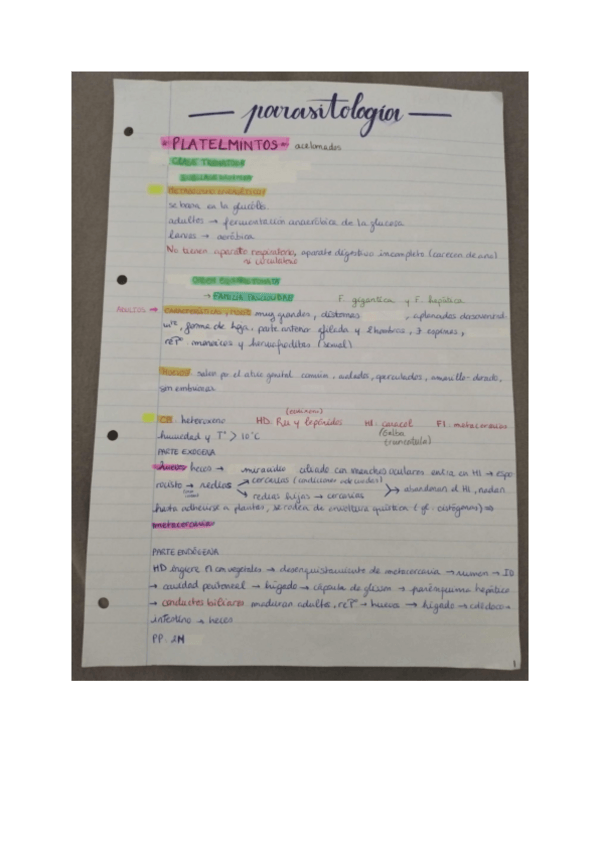 parasitología
PLATELMINTOS acelomados
CLASE TREMATODA
SUBCLASE
METABOLISMO ENERGÉTICO
se basa en la glucólisis
adultos → fermentación anaeróbica de la glucosa
larvas → aeróbica
No tienen aparato respiratorio, aparato digestivo incompleto (carecen de ano)
ni circulatorio
ORDEN
→ FAMILIA FASCIOLIDAE F. gigantica y F. hepática
Adultos → CARACTERÍSTICAS muy grandes, distomas, aplanados dorsoventral-
, forma de hoja, parte anterior afilada y hombros, espinas,
monoicos y hermafroditas (sexual)
Huevos salen por el atrio genital común, ovalados, operculados, amarillo-dorado,
son embrionados
CB: heteroxeno HD: Ru y lepóridos HI: caracol FI: metacercaria
(Galba
truncatula)
humedad y Tª > 10ºC
PARTE EXÓGENA
huevos heces → miracidio ciliado con manchas oculares entra en HI → espo
rocisto → redias → cercarias (condiciones adecuadas)
→ redias hijas → cercarias → abandonan el HI, nadan
hasta adherirse a plantas, se rodea de envoltura quística (gl. cistógenas) →
metacercaria
PARTE ENDÓGENA
HD ingiere FI con vegetales → desenquistamiento de metacercaria → rumen → ID
→ cavidad peritoneal → hígado → cápsula de glisson → parénquima hepático
→ conductos biliares maduran adultos, → huevos → hígado → colédoco →
intestino → heces
PP: 2M
1